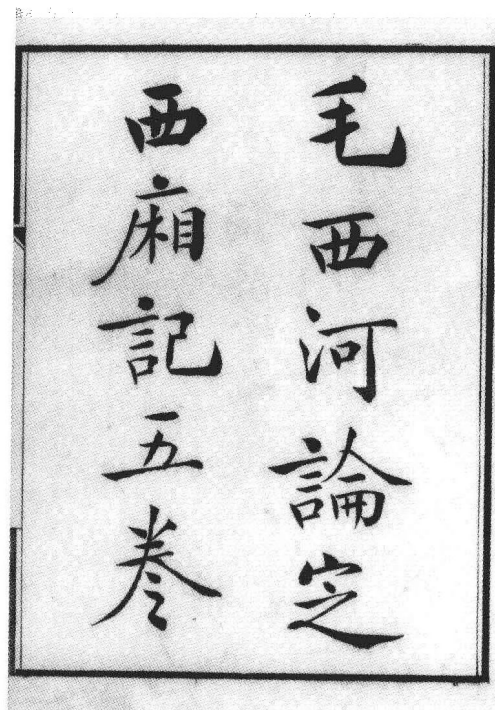 毛西河論定
西廂記五卷